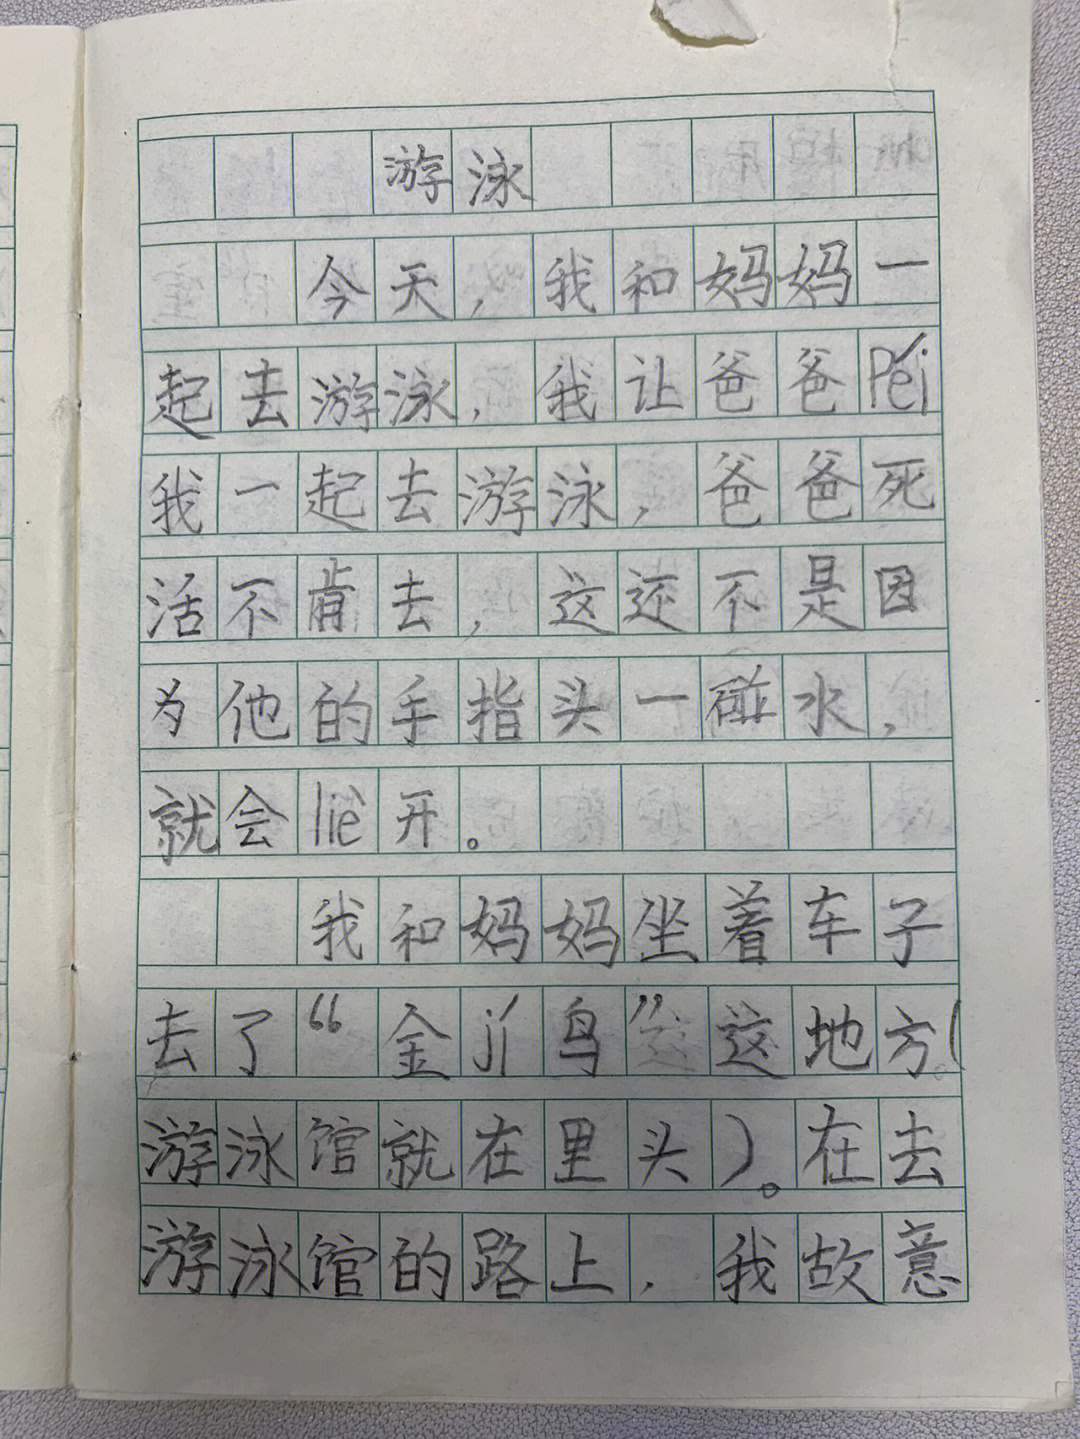 游泳
今天，我和妈妈一
起去游泳，我让爸爸Péi
我一起去游泳，爸爸死
活不肯去，这还不是因
为他的手指头一碰水，
就会liè开。
我和妈妈坐着车子
去了“金jí鸟”这地方(
游泳馆就在里头)。在去
游泳馆的路上，我故意